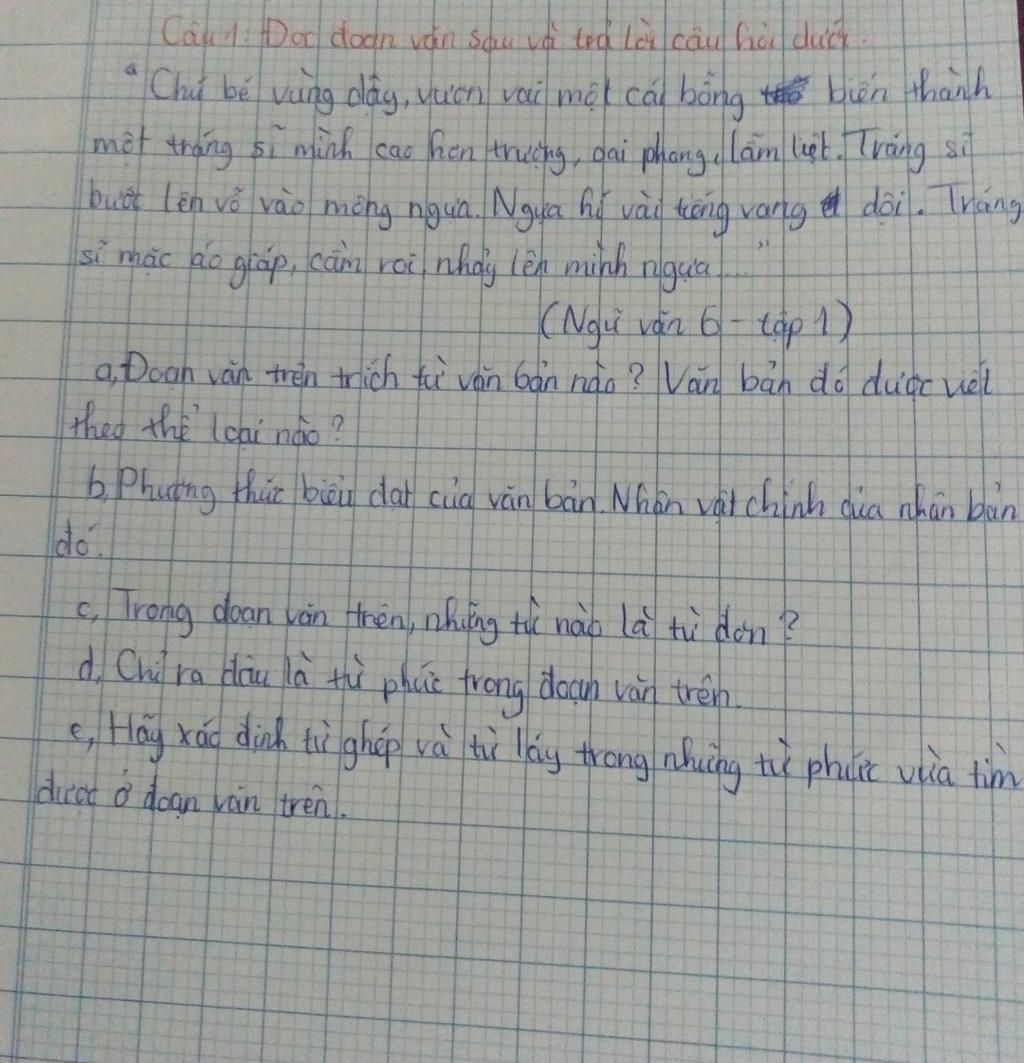 Câu 1: Đọc đoạn văn sau và trả lời câu hỏi dưới.
"Chú bé vùng dậy, vươn vai một cái bỗng biến thành
một tráng sĩ mình cao hơn trượng, oai phong, lẫm liệt. Tráng sĩ
bước lên vỗ vào mông ngựa. Ngựa hí vài tiếng vang dội. Tráng
sĩ mặc áo giáp, cầm roi, nhảy lên mình ngựa..."
(Ngữ văn 6 - tập 1)
a, Đoạn văn trên trích từ văn bản nào? Văn bản đó được viết
theo thể loại nào?
b, Phương thức biểu đạt của văn bản. Nhân vật chính của nhân bản
đó.
c, Trong đoạn văn trên, những từ nào là từ đơn?
d, Chỉ ra đâu là từ phức trong đoạn văn trên.
e, Hãy xác định từ ghép và từ láy trong những từ phức vừa tìm
được ở đoạn văn trên.